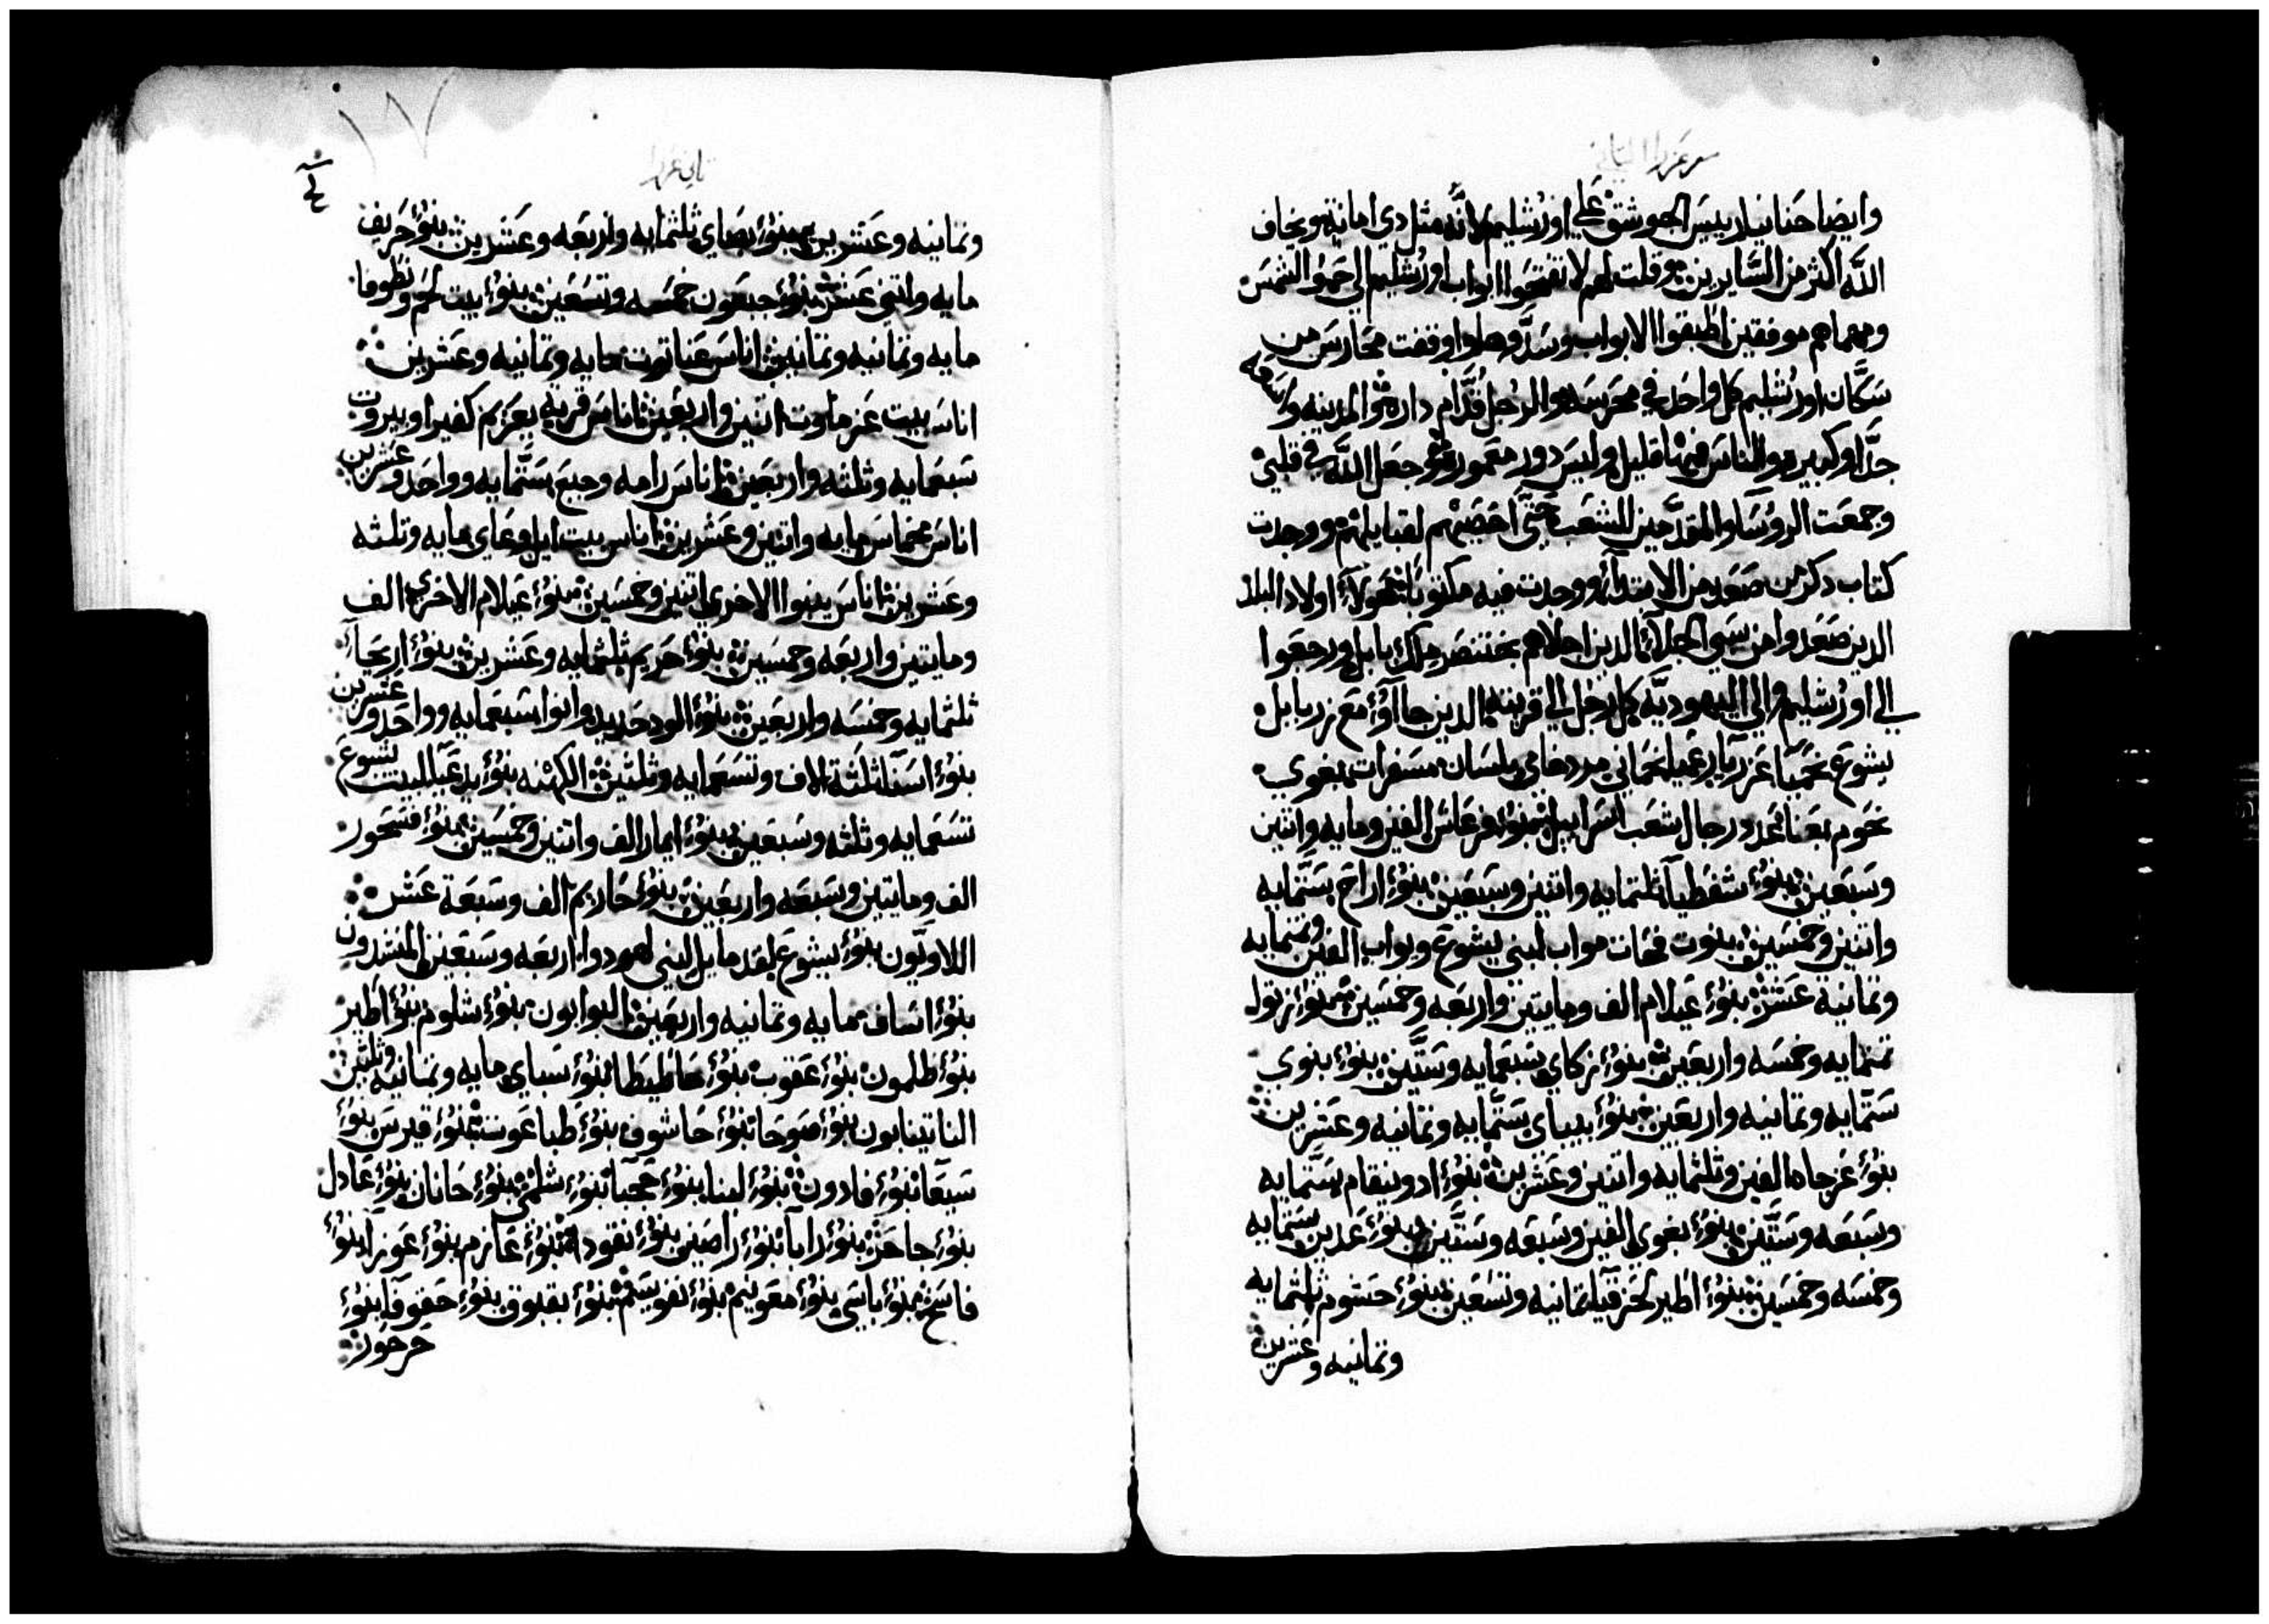 سفر عزرا الثاني
وايضا حنانيا رييس الحوشق على اورشليم لانه مثل دي امانة ويخاف
الله اكثر من السايرين وقلت لهم لا تفتحوا ابواب اورشليم الي حمو الشمس
ومهما هم موفقين اطبقوا الابواب وسدوها واوقفت محارس من
سكان اورشليم كل واحد في محرسه والرجل قدام داره والمدينه واسعه
جدا وكبيره والناس فيها قليل وليس دور معموره وجعل الله في قلبي
وجمعت الروسا والمقدمين الشعب حتى احصيهم لقبايلهم ووجدت
كتاب دكر من صعد من الابتدا ووجدت فيه مكتوبا هولاء اولاد البلد
الدين صعدوا من سبي الجلاء الدين اجلاهم بختنصر ملك بابل ورجعوا
الي اورشليم والي اليهوديه كل رجل الي قريته الدين جاآوا مع زربابل
يشوع نحميا عزريا رعميا نحماني مردخاي بلسان مسفرات بغوي
نحوم بعنا عدد رجال شعب اسراييل بنوا فرعاس الفين ومايه واتنين
وسبعين بنوا شفطيا ثلثمايه واتنين وسبعين بنوا اراح ستمايه
واتنين وخمسين بنوت فحات مواب لبني يشوع ويواب الفين وتمنمايه
وتمانية عشر بنوا عيلام الف ومايتين واربعه وخمسين بنوا زتول
تمنمايه وخمسه واربعين بنوا زكاي سبعمايه وستين بنوا بنوي
ستمايه وتمانيه واربعين بنوا بيباي ستمايه وتمانيه وعشرين
بنوا عزجاد الفين وثلثمايه واتنين وعشرين بنوا ادونيقام ستمايه
وسبعه وستين بنوا بغوي الفين وسبعه وستين بنوا عدين ستمايه
وخمسه وخمسين بنوا اطير لحزقيا تمانيه وتسعين بنوا حشوم ثلثمايه
وتمانيه وعشرين
ثاني عزرا
وتمانيه وعشرين بنوا بصاي ثلثمايه واربعه وعشرين بنوا حريف
مايه واتني عشر بنوا جبعون خمسه وتسعين بنوا بيت لحم ونطوفا
مايه وتمانيه وتمانين اناس عناتوت مايه وتمانيه وعشرين
اناس بيت عزماوت اتنين واربعين اناس قرية يعريم كفيرا وبيروت
سبعمايه وثلثه واربعين اناس رامه وجبع ستمايه وواحد وعشرين
اناس مخماس مايه واتنين وعشرين اناس بيت ايل وعاي مايه وثلثه
وعشرين اناس ينبوا الاخري اتنين وخمسين بنوا عيلام الاخري الف
ومايتين واربعه وخمسين بنوا حريم ثلثمايه وعشرين بنوا اريحا
ثلثمايه وخمسه واربعين بنوا الود حديد وانوا سبعمايه وواحد وعشرين
بنوا اسنا ثلثة الاف وتسعمايه وثلثين الكهنه بنوا يدعيا لبيت يشوع
تسعمايه وثلثه وسبعين بنوا ايمار الف واتنين وخمسين بنوا فسحور
الف ومايتين وسبعه واربعين بنوا حاريم الف وسبعة عشر
اللاويون بنوا يشوع لقدمايل لبني لهودوا اربعه وسبعين المنشدون
بنوا اساف مايه وتمانيه واربعين البوابون بنوا شلوم بنوا اطير
بنوا طلمون بنوا عقوب بنوا حاطيطا بنوا سباي مايه وتمانيه وثلثين
الناتينايون بنوا صوحا بنوا حاشوف بنوا طباعوت بنوا قيرس بنوا
سيعا بنوا فادون بنوا لبنا بنوا عجبا بنوا شلمي بنوا حانان بنوا عادل
بنوا جاحر بنوا رايا بنوا راصين بنوا نقودا بنوا عازم بنوا عوزا بنوا
فاسح بنوا باسي بنوا معونيم بنوا نفوسيم بنوا بقبوق بنوا حقوفا بنوا
حرحور